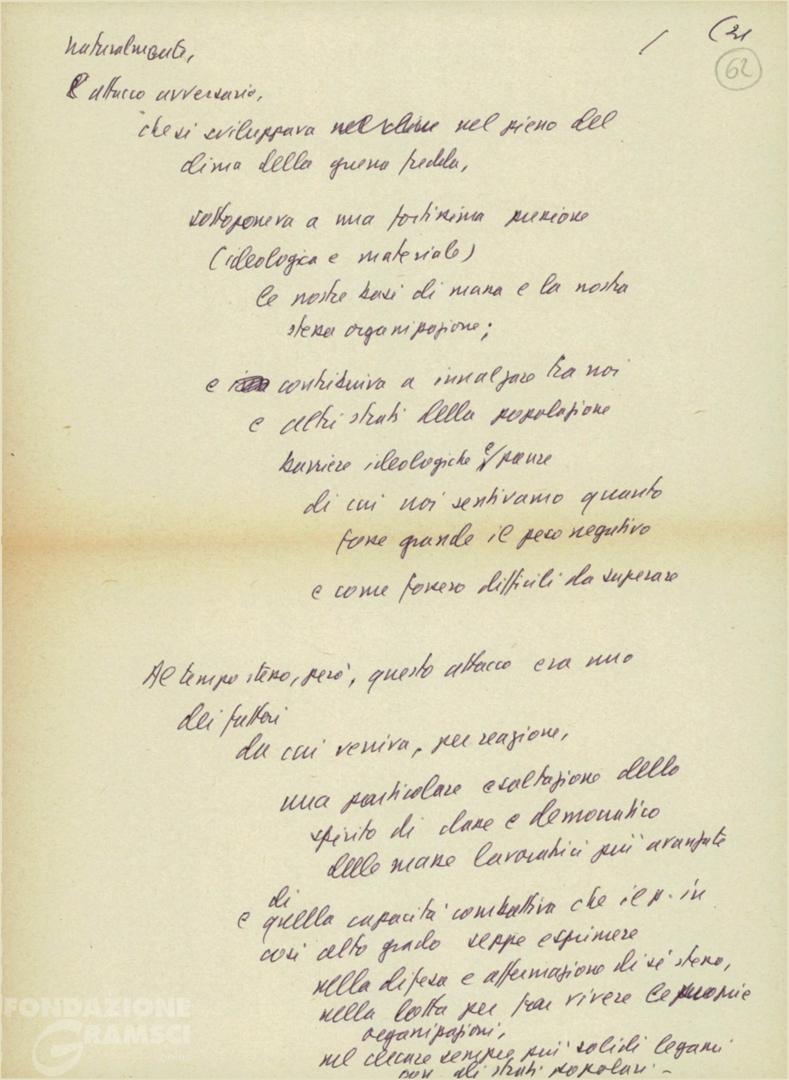 (21
62
naturalmente,
l'attacco avversario,
che si sviluppava nel clima nel pieno del
clima della guerra fredda,
sottoponeva a una fortissima pressione
(ideologica e materiale)
le nostre basi di massa e la nostra
stessa organizzazione;
e contribuiva a innalzare tra noi
e altri strati della popolazione
barriere ideologiche e paure
di cui noi sentivamo quanto
fosse grande il peso negativo
e come fossero difficili da superare
Al tempo stesso, però, questo attacco era uno
dei fattori
da cui veniva, per reazione,
una particolare esaltazione dello
spirito di classe e democratico
delle masse lavoratrici più avanzate
di
e quella capacità combattiva che il p. in
così alto grado seppe esprimere
nella difesa e affermazione di sé stesso,
nella lotta per far vivere le proprie
organizzazioni,
nel cercare sempre più solidi legami
con gli strati popolari -
FONDAZIONE
GRAMSCI